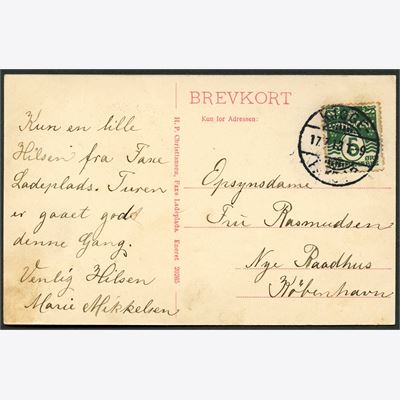 Kun en lille
Hilsen fra Faxe
Ladeplads. Turen
er gaaet godt
denne Gang.
Venlig Hilsen
Marie Mikkelsen
H. P. Christiansen, Faxe Ladeplads. Eneret 20285
BREVKORT
Kun for Adressen:
Opsynsdame
Fru Rasmussen
Nye Raadhus
København
5